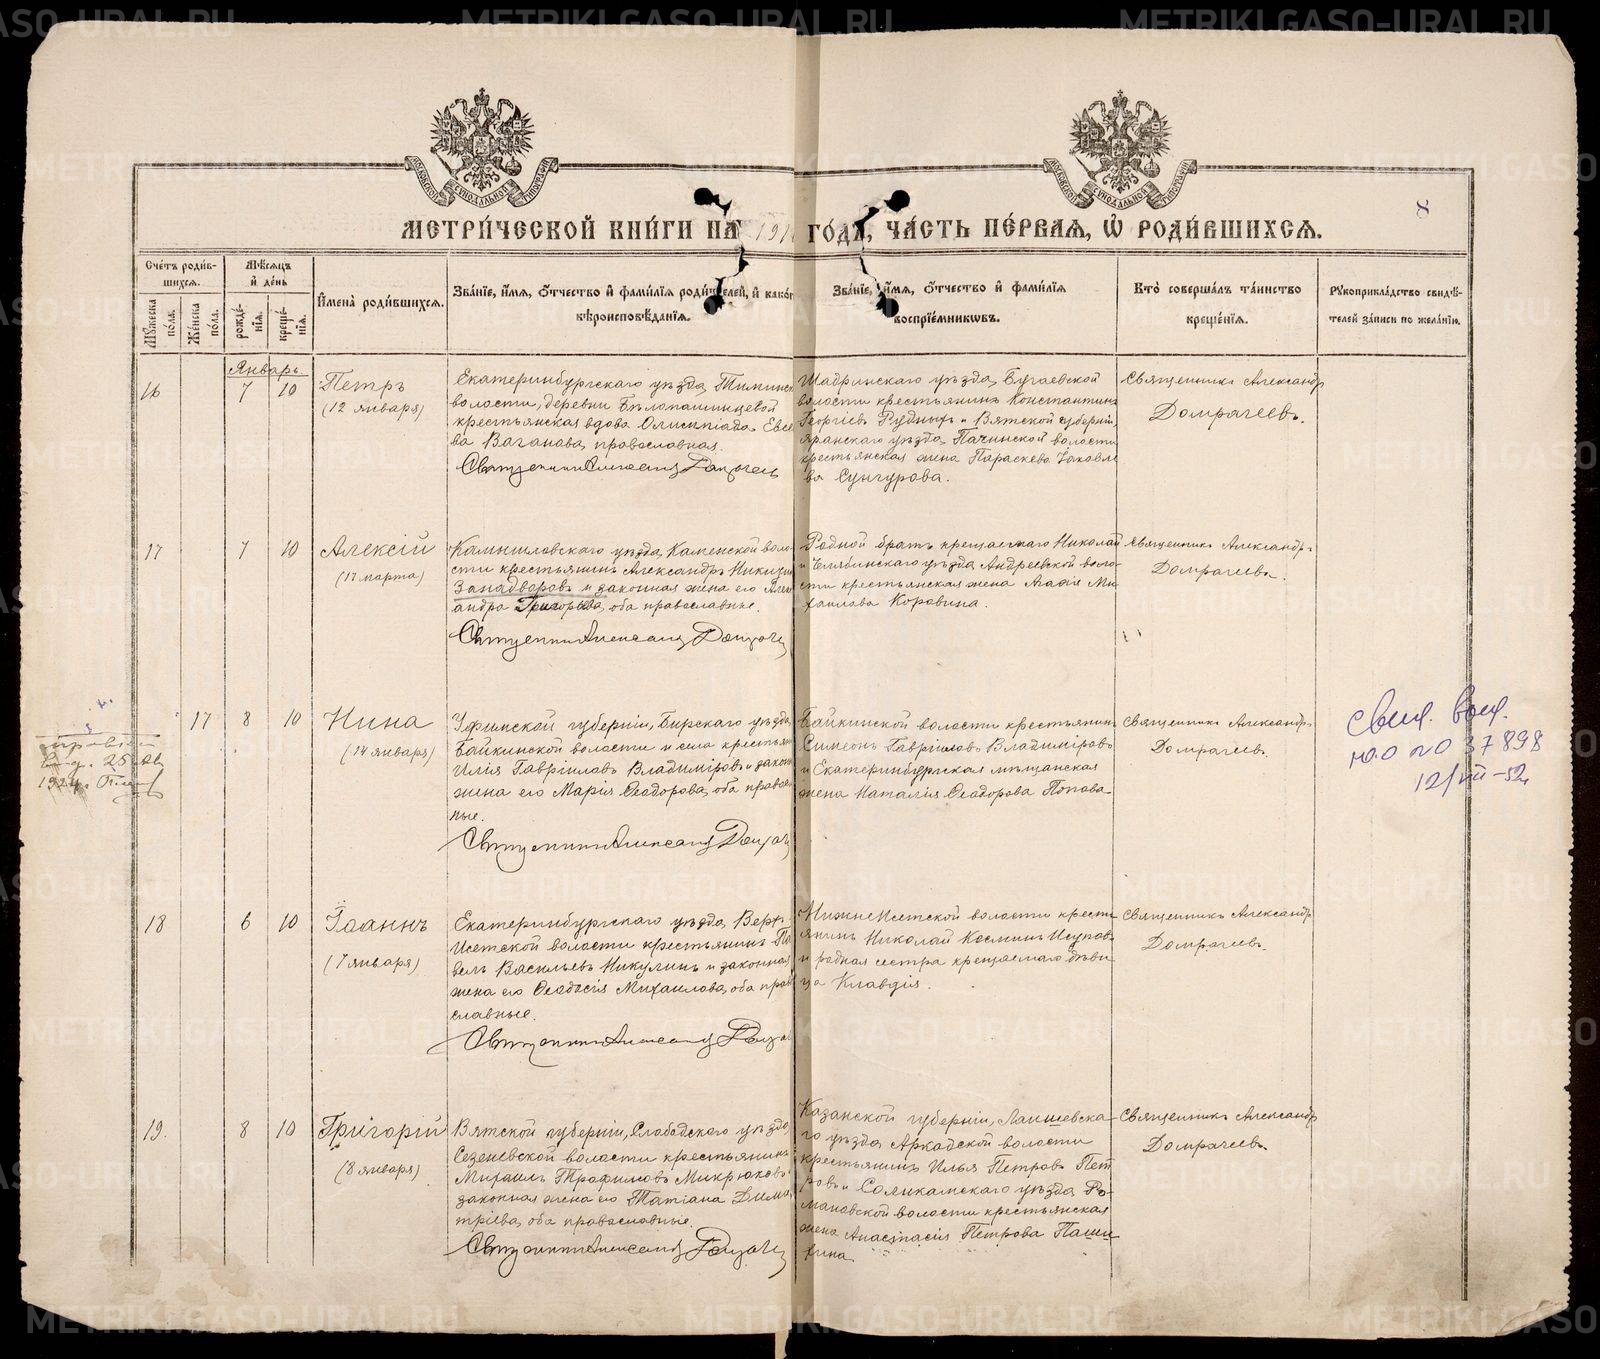 METRIKI.GASO-URAL.RU
МОСКОВСКОЙ СѴНОДАЛЬНОЙ ТИПОГРАФІИ
МОСКОВСКОЙ СѴНОДАЛЬНОЙ ТИПОГРАФІИ
МЕТРИ́ЧЕСКОЙ КНИ́ГИ НА 191 ГО́ДЪ, ЧА́СТЬ ПЕ́РВАЯ, Ѽ РОДИ́ВШИХСЯ.
8
Сче́тъ роди́в-
шихся.
Мѣ́сяцъ
и҆ де́нь
Мꙋ́жеска
по́ла.
Же́нска
по́ла.
рожде́-
нїя.
креще́-
нїя.
И҆мена̀ роди́вшихся.
Зва́нїе, и҆́мя, ѻ҆́тчество и҆ фами́лїя роди́телей, и҆ како́гѡ
вѣроисповѣ́данїя.
Зва́нїе, и҆́мя, ѻ҆́тчество и҆ фами́лїя
воспрїе́мниковъ.
Кто̀ соверша́лъ та́инство
креще́нїя.
Рꙋкоприкла́дство свидѣ́-
телей за́писи по жела́нїю.
Январь.
16
7
10
Петръ
(12 января)
Екатеринбургскаго уѣзда, Тиминс
волости, деревни Бѣлопашинцевой
крестьянская вдова Олимпіада Евсе
ва Ваганова, православная.
Священникъ Александръ Домрачевъ
Шадринскаго уѣзда, Бугаевской
волости крестьянинъ Константинъ
Георгіевъ Рудныхъ и Вятской губерніи,
Яранскаго уѣзда, Пачинской волости
крестьянская жена Параскева Іаковле
ва Сунгурова.
Священникъ Александръ
Домрачеевъ.
17
7
10
Алексій
(17 марта)
Камышловскаго уѣзда, Каменской воло-
сти крестьянинъ Александръ Никизинъ
Западворовъ и законная жена его Алек
андра Григорьева, оба православные.
Священникъ Александръ Домрачевъ
Родной братъ крещаемаго Николай
и Челябинскаго уѣзда, Андреевской воло-
сти крестьянская жена Агафія Ми-
хаилова Коровина.
Священникъ Александръ
Домрачеевъ.
17
8
10
Нина
(14 января)
Уфимской губерніи, Бирскаго уѣзда,
Байкинской волости и села крестьян
Илія Гавріиловъ Владиміровъ и закон
жена его Марія Ѳеодорова, оба правос
ные.
Священникъ Александръ Домрачевъ
Байкинской волости крестьянинъ
Симеонъ Гавріиловъ Владиміровъ
и Екатеринбургская мѣщанская
жена Наталія Ѳеодорова Попова.
Священникъ Александръ
Домрачеевъ.
свид. выд.
№0 37898
12/VII-52
18
6
10
Іоаннъ
(7 января)
Екатеринбургскаго уѣзда, Верх-
Исетской волости крестьянинъ Па
велъ Васильевъ Никулинъ и законная
жена его Ѳеодосія Михаилова, оба прав
славные.
Священникъ Александръ Домрачевъ
НижнеИсетской волости кресть-
янинъ Николай Косминъ Исуповъ
и родная сестра крещаемаго дѣви
ца Клавдія.
Священникъ Александръ
Домрачеевъ.
19.
8
10
Григорій
(8 января)
Вятской губерніи, Слободскаго уѣзда,
Сезеневской волости крестьянинъ
Михаилъ Трофимовъ Микрюковъ
законная жена его Татіана Дими
тріева, оба православные.
Священникъ Александръ Домрачевъ
Казанской губерніи, Лаишевска-
го уѣзда, Аркадской волости
крестьянинъ Илья Петровъ Пет
ровъ и Соликамскаго уѣзда, Ро-
мановской волости крестьянская
жена Анастасія Петрова Паши
хина.
Священникъ Александръ
Домрачеевъ.